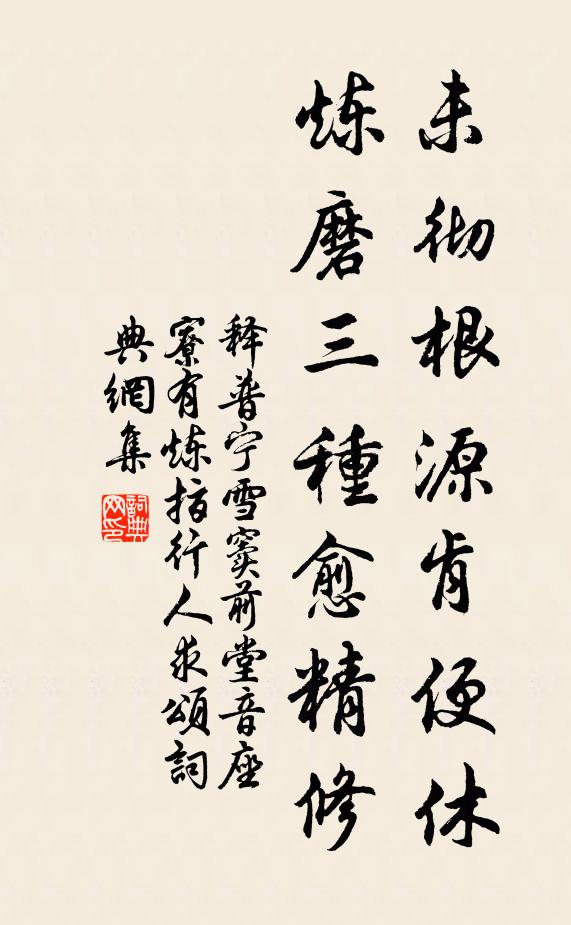 未彻根源肯便休
炼磨三種愈精修
释普宁雪窦前堂音座
寮有炼指行人求頌詞
典網集
詞典
网印